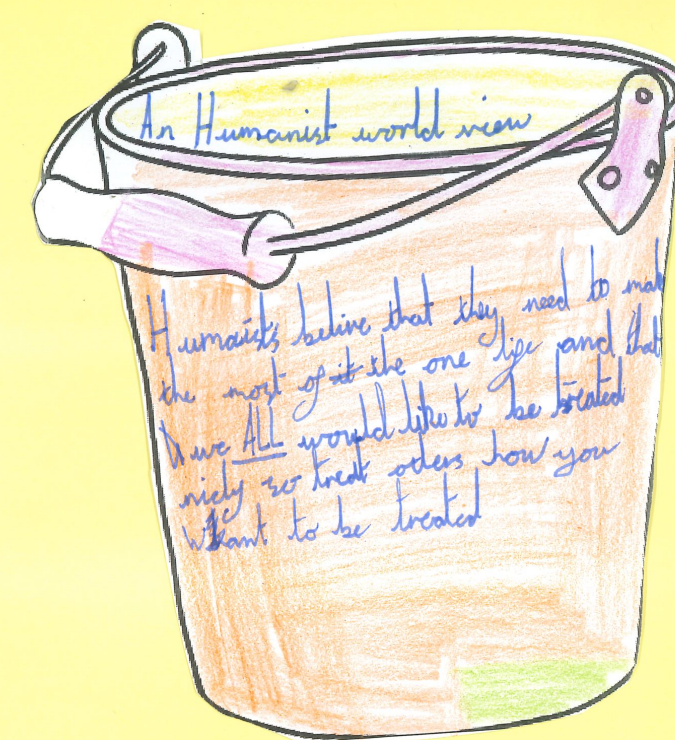 An Humanist world view
Humaists belive that they need to mak
the most of it the one life and that
we ALL would like to be treated
nicly so treat oders how you
want to be treated